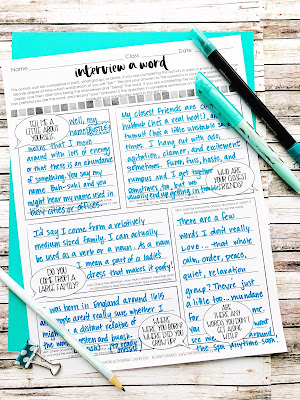 Name Class Date
interview a word
TELL ME A
LITTLE ABOUT
YOURSELF.
Well, my
name BUSTLE
means that I move
around with lots of energy
or that there is an abundance
of something. You say my
name Buh-suhl and you
might hear my name used in
busy cities or offices.
My closest friends are
hubbub (he's a real hoot!), and
hubbub (he's a little unstable at
times. I hang out with ado,
agitation, clamor, and excitement
sometimes. Furor, fuss, haste, and
rumpus and I get together
sometimes, too, but we
usually end up getting in trouble.
WHO ARE
YOUR CLOSEST
FRIENDS?
I'd say I come from a relatively
medium sized family. I can actually
be used as a verb or a noun. As a noun
I mean a part of a ladies'
dress that makes it poofy!
DO YOU
COME FROM A
LARGE FAMILY?
There are a few
words I don't really
love... that whole
calm, order, peace,
quiet, relaxation
group? They're just
a little too...mundane
for me.
ARE
THERE ANY
WORDS YOU DON'T
GET ALONG
WITH?
You won't
see me around
the spa anytime soon!
I was born in England around 1615
people aren't really sure whether I
might be a distant relative of
the words
WHERE
WERE YOU BORN?
WHERE DID YOU
GROW UP?